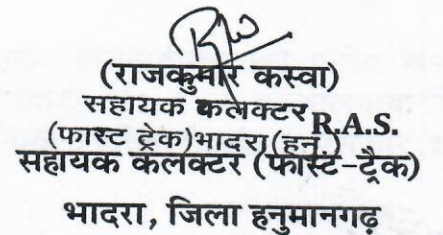 (राजकुमार कस्वा)
सहायक कलक्टर R.A.S.
(फास्ट ट्रेक)भादरा(हनु.)
सहायक कलक्टर (फास्ट-ट्रैक)
भादरा, जिला हनुमानगढ़